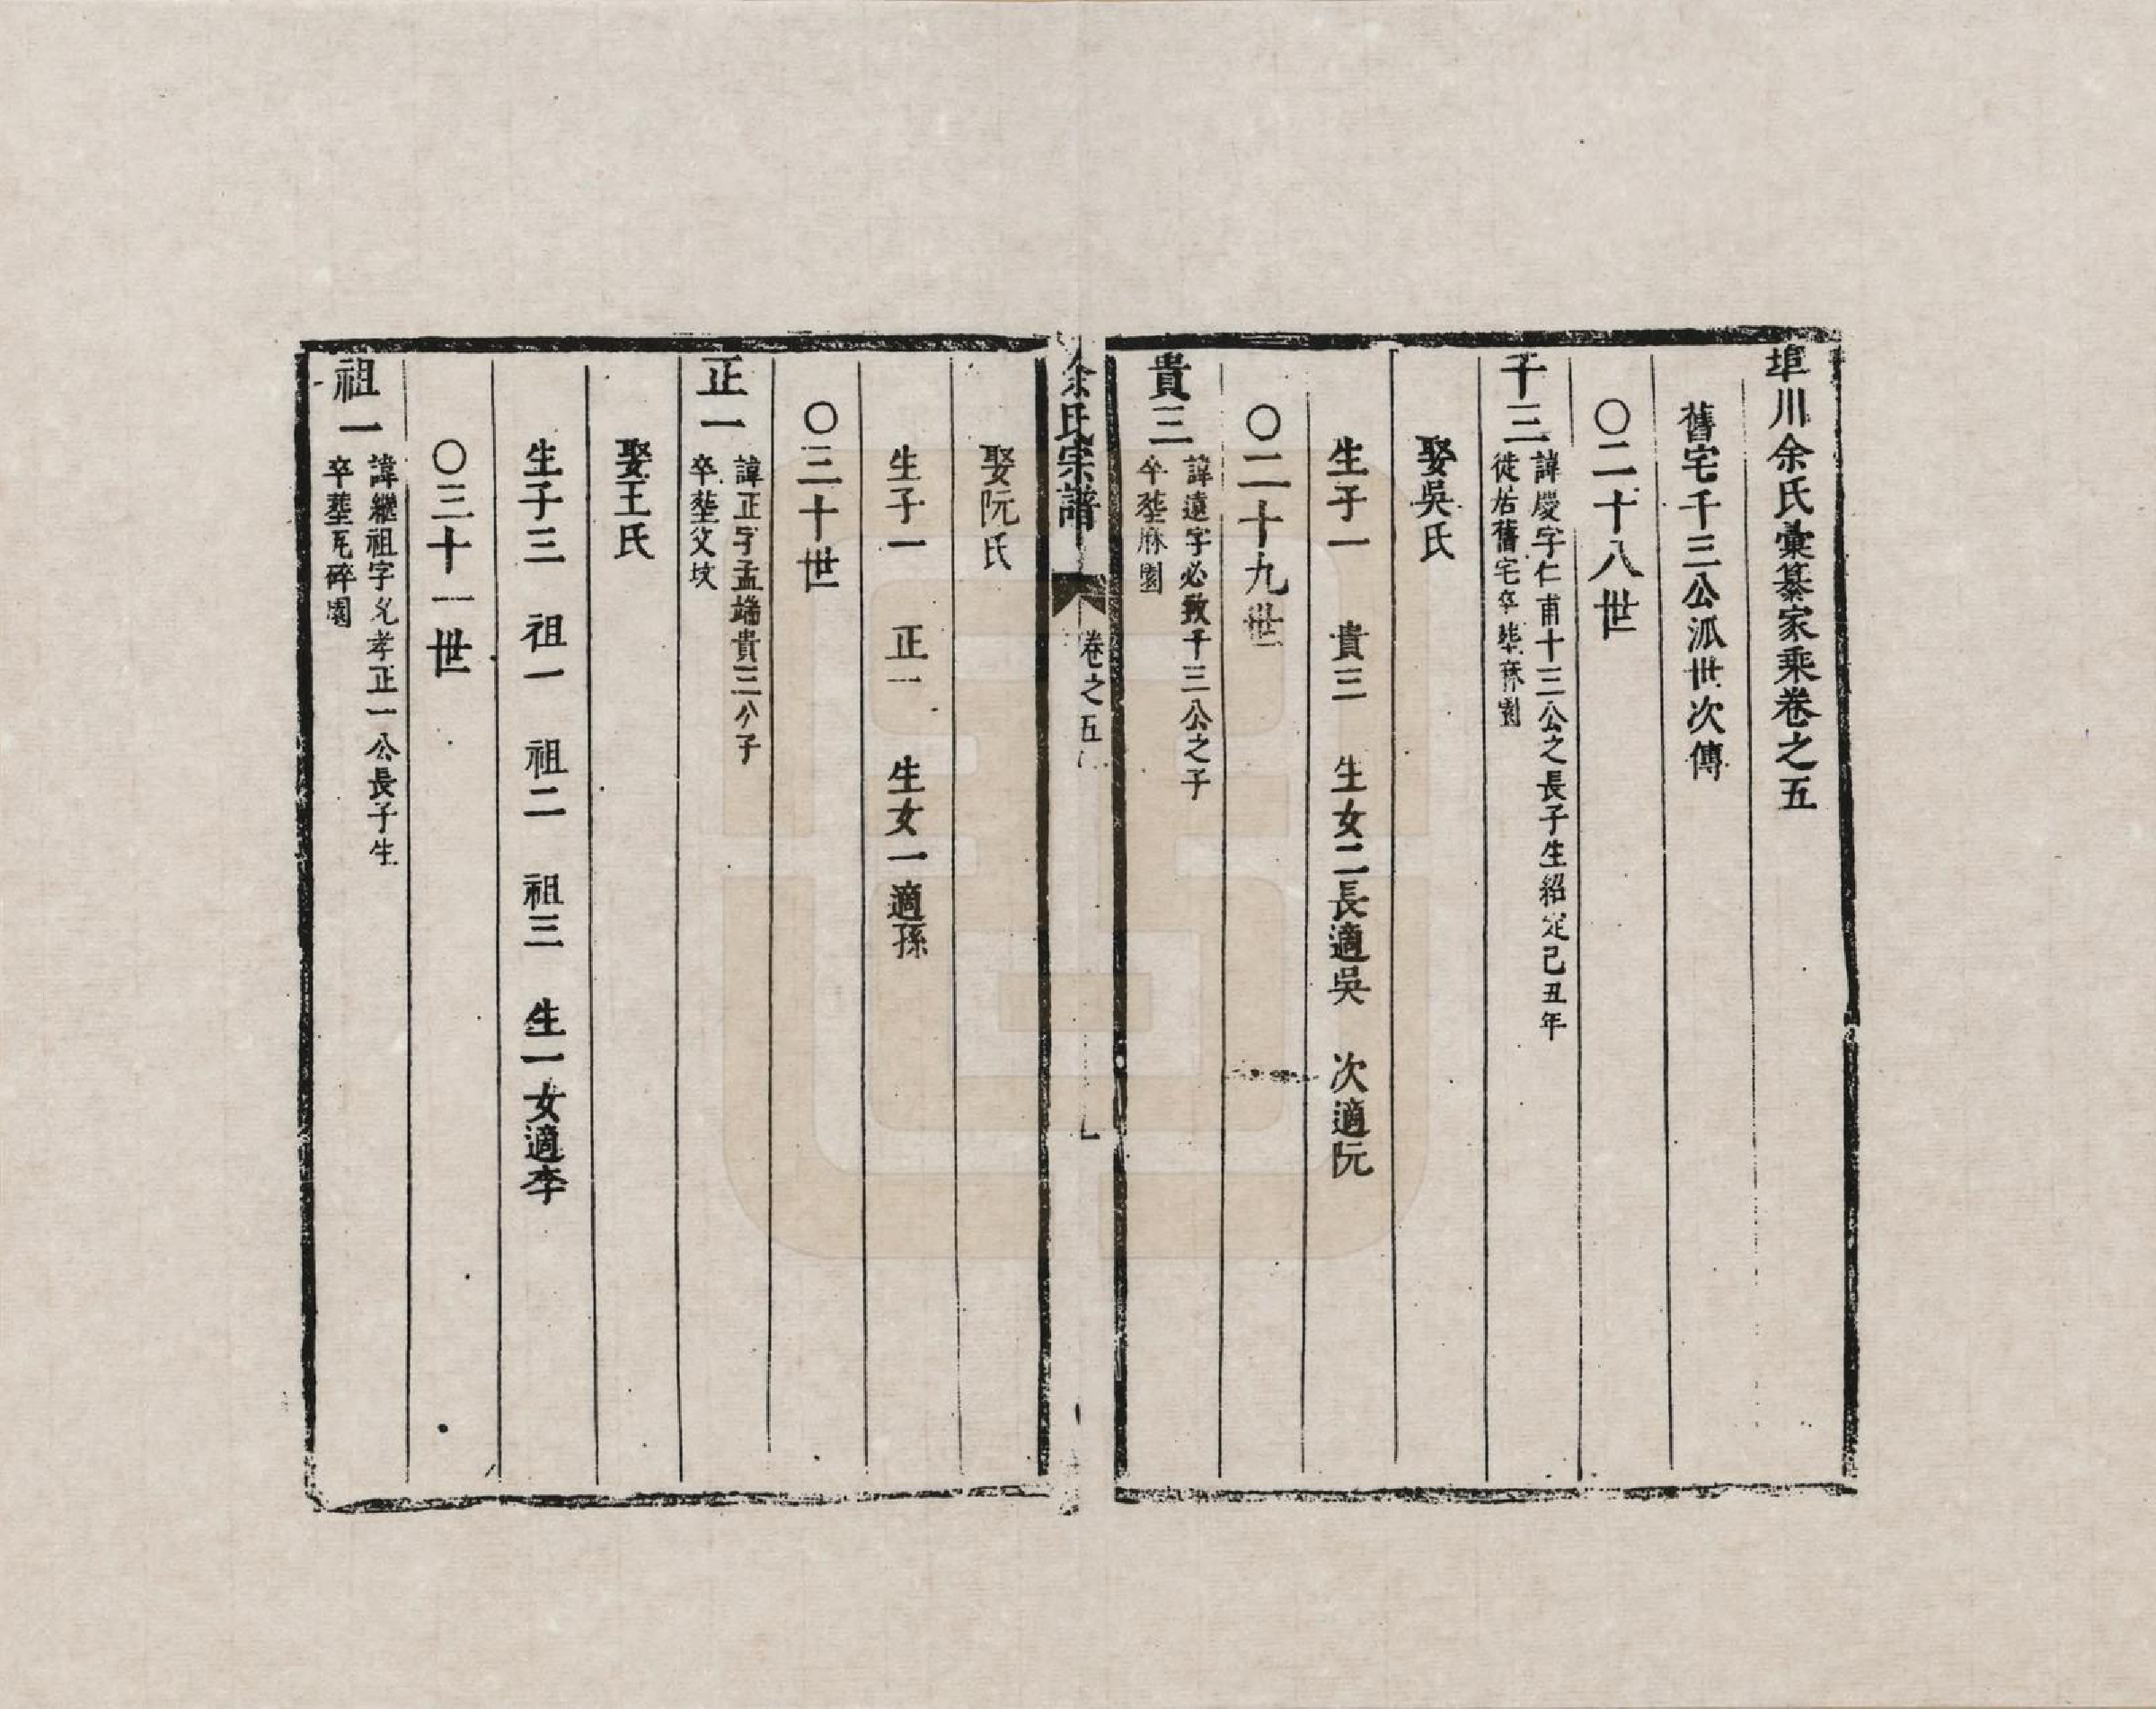 埠川余氏彙纂家乘卷之五
舊宅千三公派世次傳
○二十八世
千三
諱慶字仁甫十三公之長子生紹定己丑年
徙居舊宅卒塟麻園
娶吳氏
生子一　貴三　生女二長適吳　次適阮
○二十九世
貴三
諱遠字必致千三公之子
卒塟麻園
余氏宗譜
卷之五
娶阮氏
生子一　正一　生女一適孫
○三十世
正一
諱正字孟端貴三公子
卒塟父坟
娶王氏
生子三　祖一　祖二　祖三　生一女適李
○三十一世
祖一
諱繼祖字允孝正一公長子生
卒塟瓦碎園